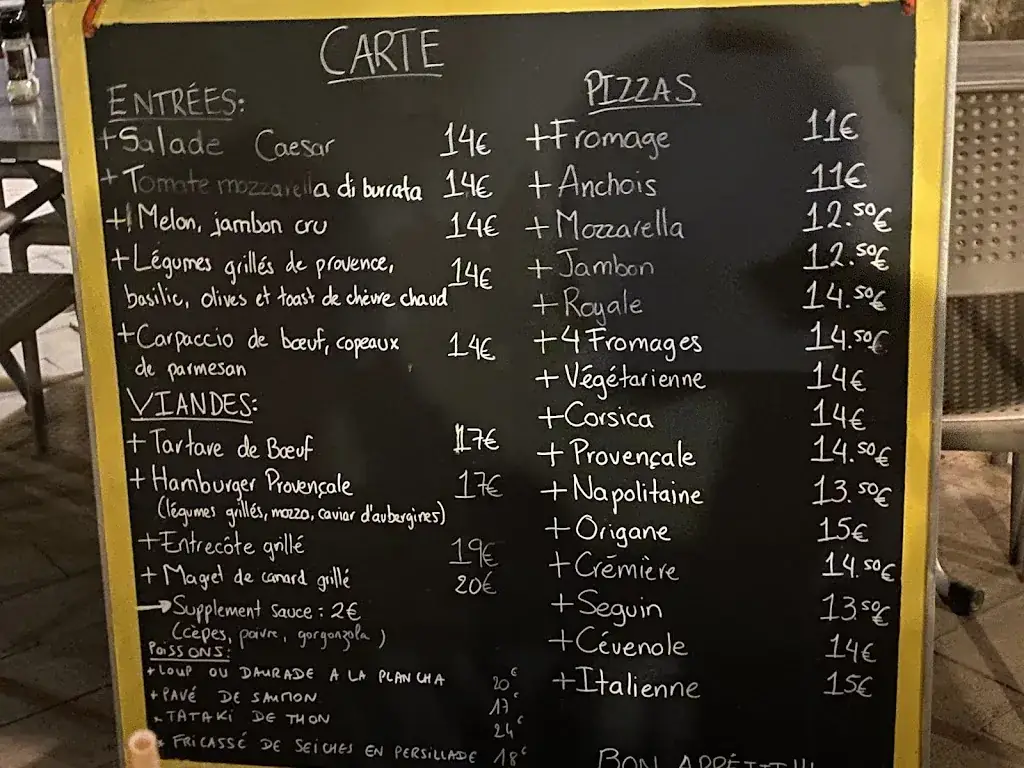 CARTE
ENTRÉES:
+Salade Caesar 14€
+Tomate mozzarella di burrata 14€
+Melon, jambon cru 14€
+Légumes grillés de provence, 14€
basilic, olives et toast de chèvre chaud
+Carpaccio de bœuf, copeaux 14€
de parmesan
VIANDES:
+Tartare de Bœuf 17€
+Hamburger Provençale 17€
(légumes grillés, mozza, caviar d'aubergines)
+Entrecôte grillé 19€
+Magret de canard grillé 20€
→Supplement sauce : 2€
(cèpes, poivre, gorgonzola)
POISSONS:
+LOUP OU DAURADE A LA PLANCHA 20€
+PAVÉ DE SAUMON 17€
+TATAKI DE THON 24€
+FRICASSÉ DE SEICHES EN PERSILLADE 18€
PIZZAS
+Fromage 11€
+Anchois 11€
+Mozzarella 12.50€
+Jambon 12.50€
+Royale 14.50€
+4 Fromages 14.50€
+Végétarienne 14€
+Corsica 14€
+Provençale 14.50€
+Napolitaine 13.50€
+Origane 15€
+Crémière 14.50€
+Seguin 13.50€
+Cévenole 14€
+Italienne 15€
BON APPÉTIT!!!